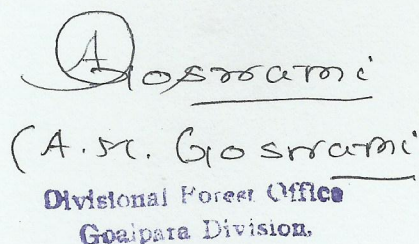 AGoswami
(A.K. Goswami
Divisional Forest Office
Goalpara Division,